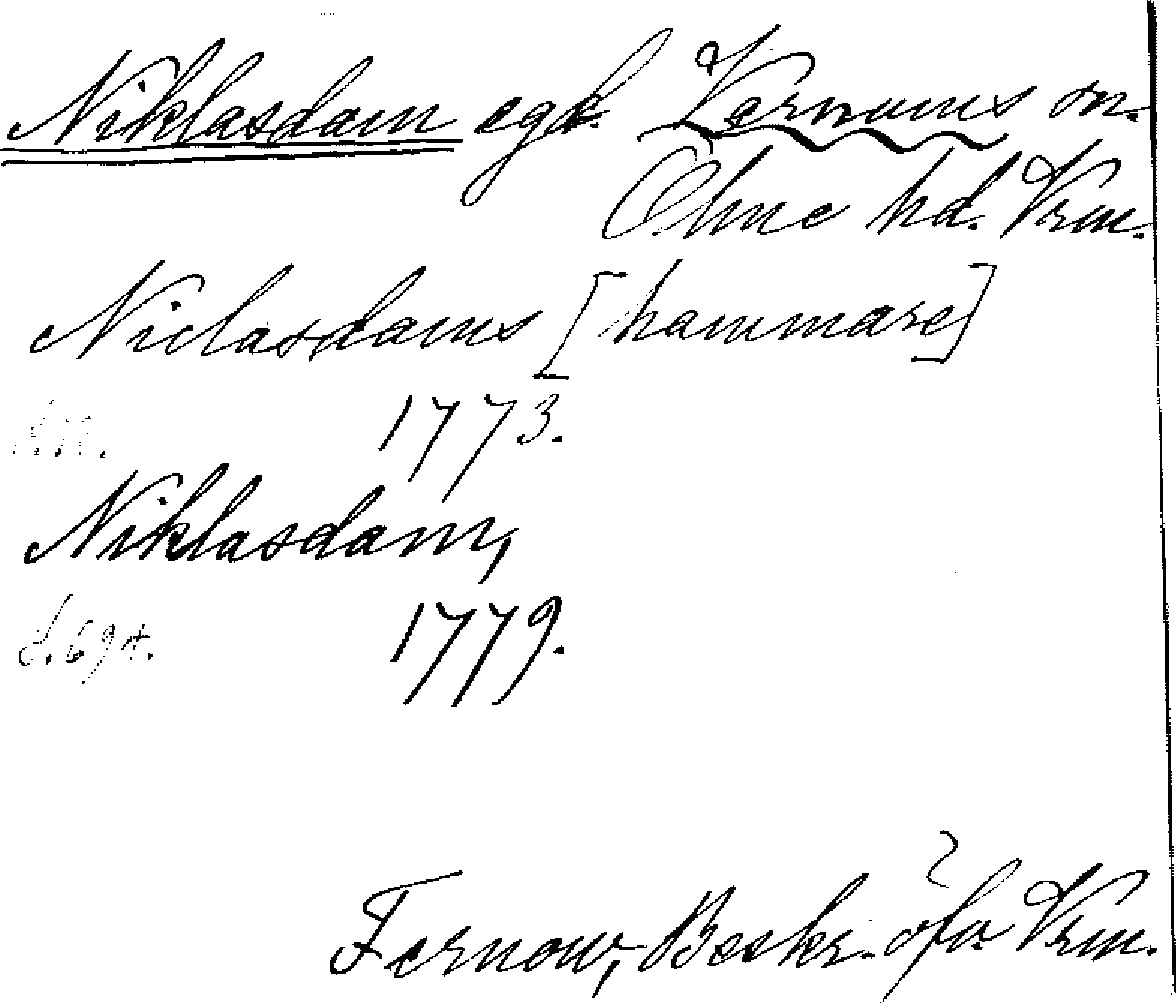 Niklasdam egd. Varnums sn.
Ölme hd. Vrm.
Niclasdams [hammare]
1773.
Niklasdam,
S. 694. 1779.
Fernow, Beskr. öfv. Vrm.